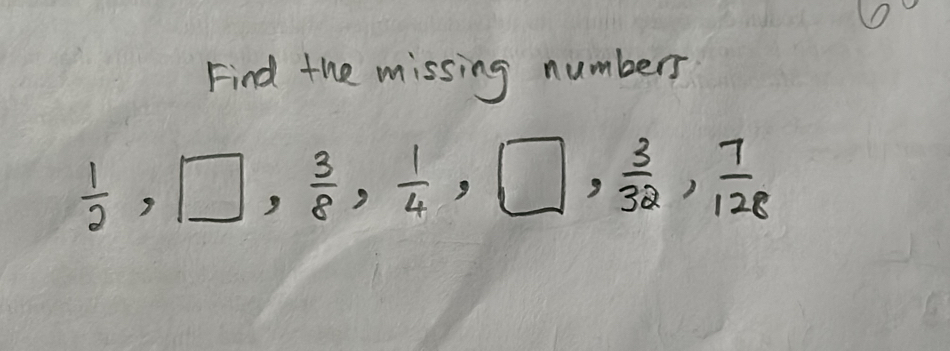 Find the missing numbers.
1/2, □, 3/8, 1/4, □, 3/32, 7/128